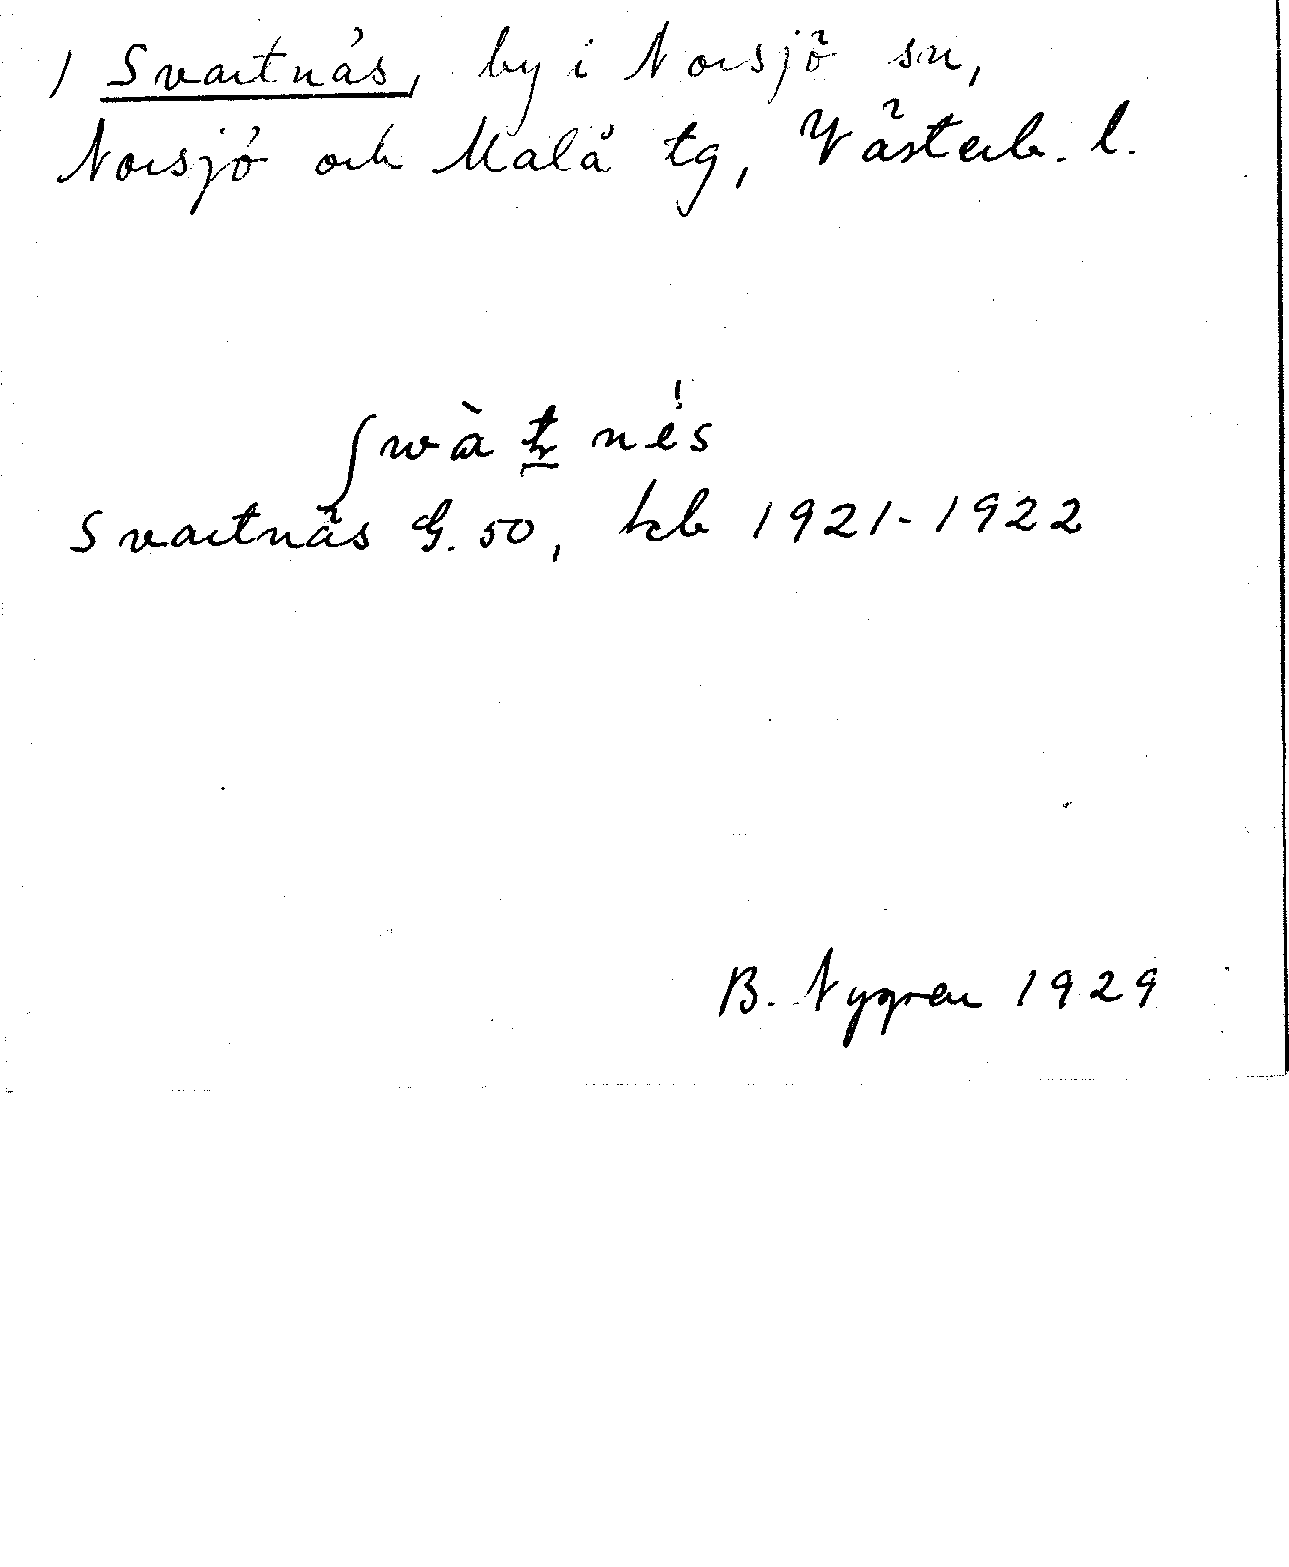 ) Svartnäs, by i Norsjö sn,
Norsjö och Malå tg, Västerb. l.
ʃwàt nés
Svartnäs G. 50, kb 1921-1922
B. Nygren 1929